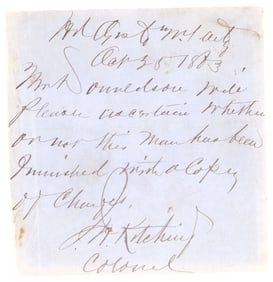 Hd Qrs 6" N.Y. Arty
Oct 25 1863
Mr Donnelson will
Please ascertain whether
or not this man has been
furnished with a Copy
of Charges.
J. H. Kitching
Colonel